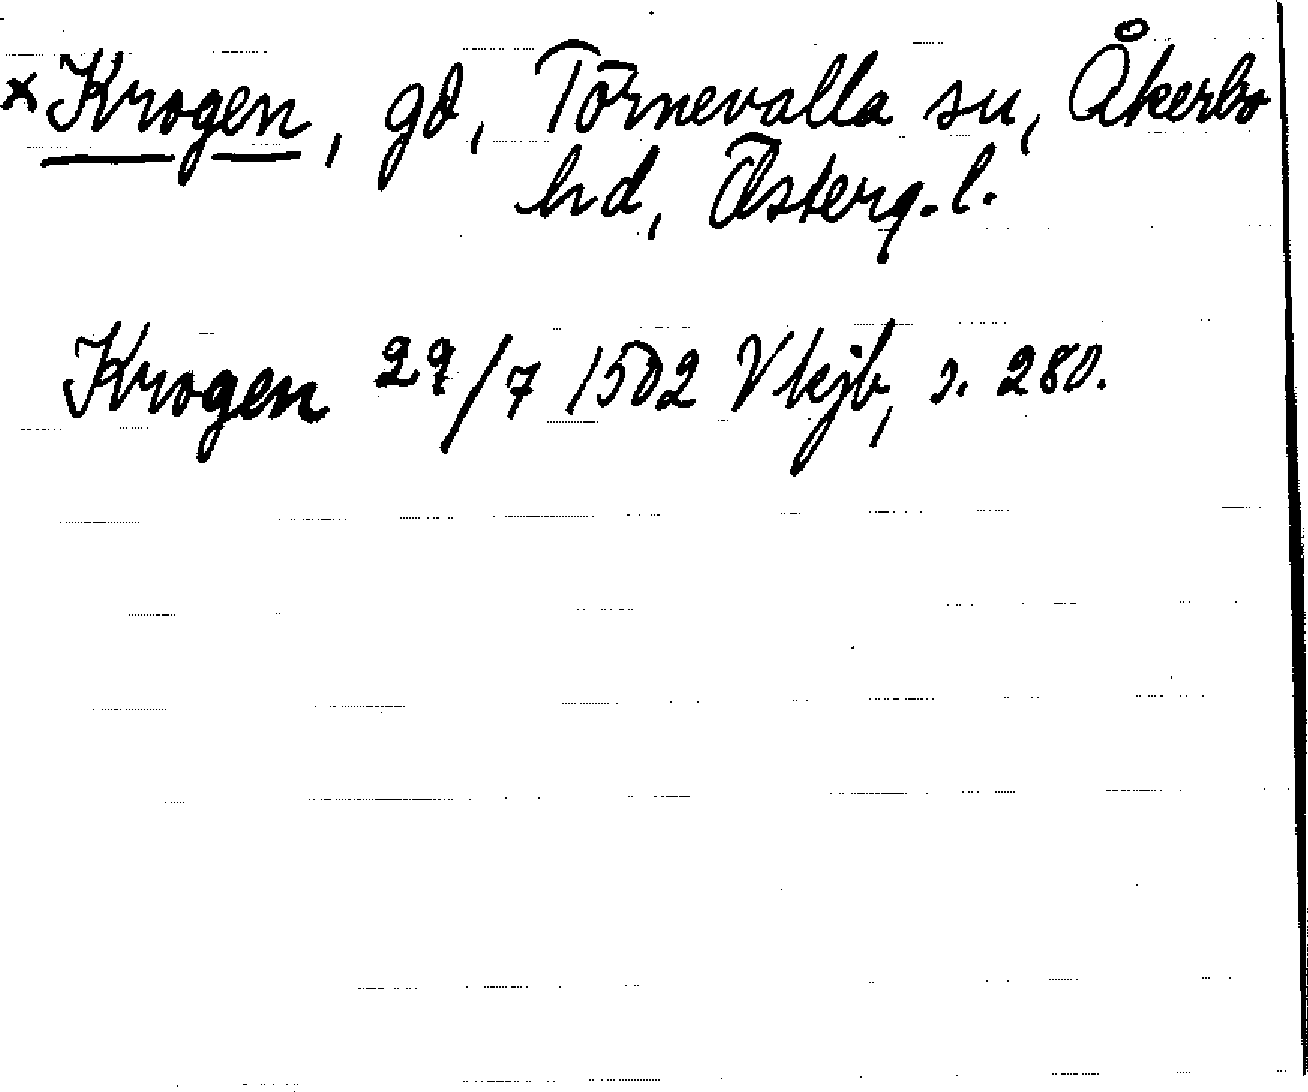 x Krogen, gd, Törnevalla sn, Åkerbo
hd, Österg. l.
Krogen 29/7 1502 Vkjb, s. 280.